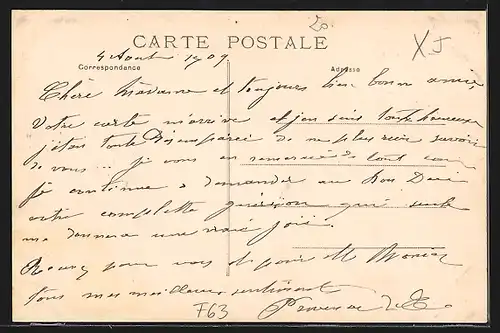 20
CARTE POSTALE
XJ
4 Aout 1909
Correspondance
Adresse
Chère Madame et toujours bien bonne amie,
Votre carte m'arrive et j'en suis toute heureuse
j'étais toute désemparée de ne plus rien savoir
de vous ... je vous en remercie de tout
Je continue a demander au Bon Dieu
votre complette guérison qui seule
me donnera une vraie joie.
pour vous
tous mes meilleurs sentiments
F63